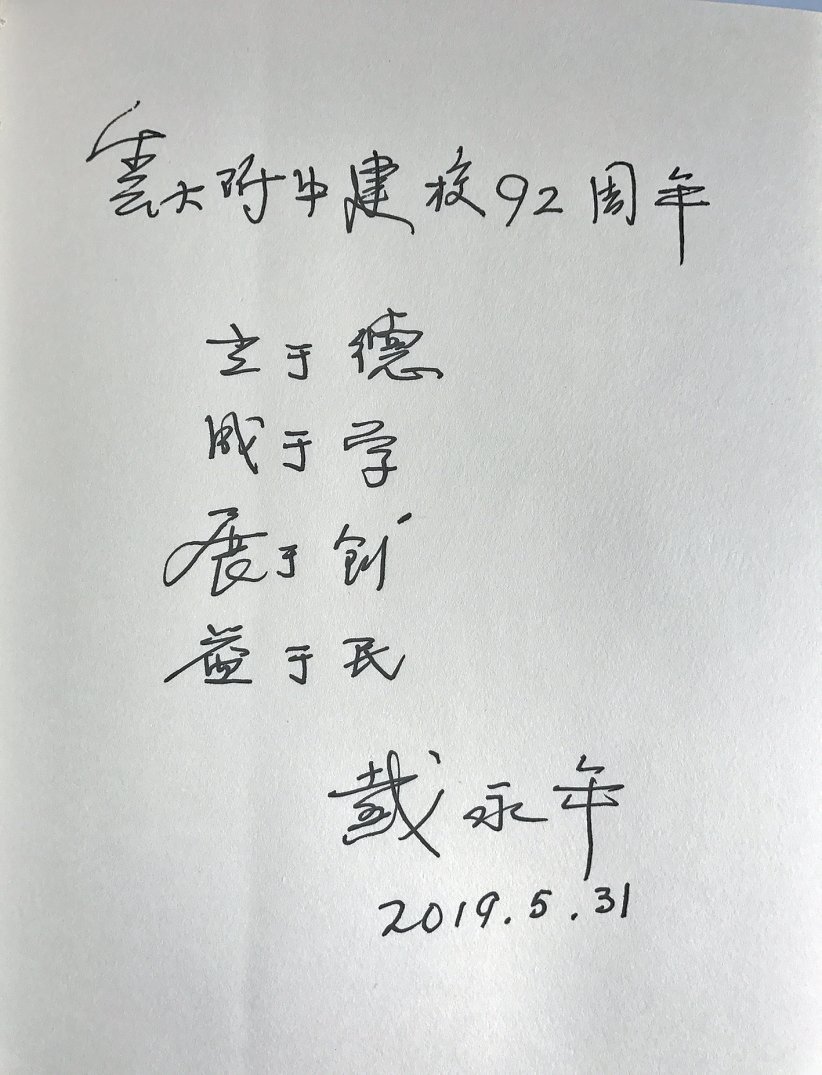 云大附中建校92周年
立于德
成于学
展于创
益于民
戴永年
2019.5.31